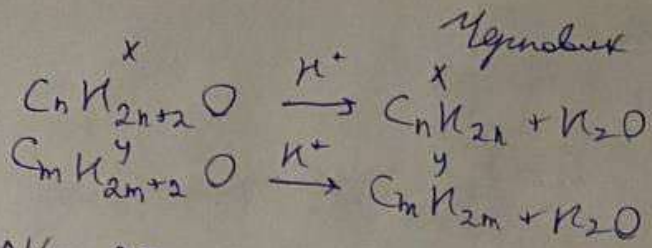 Черновик
x H⁺ x
CₙH₂ₙ₊₂O ⟶ CₙH₂ₙ + H₂O
y H⁺ y
CₘH₂ₘ₊₂O ⟶ CₘH₂ₘ + H₂O